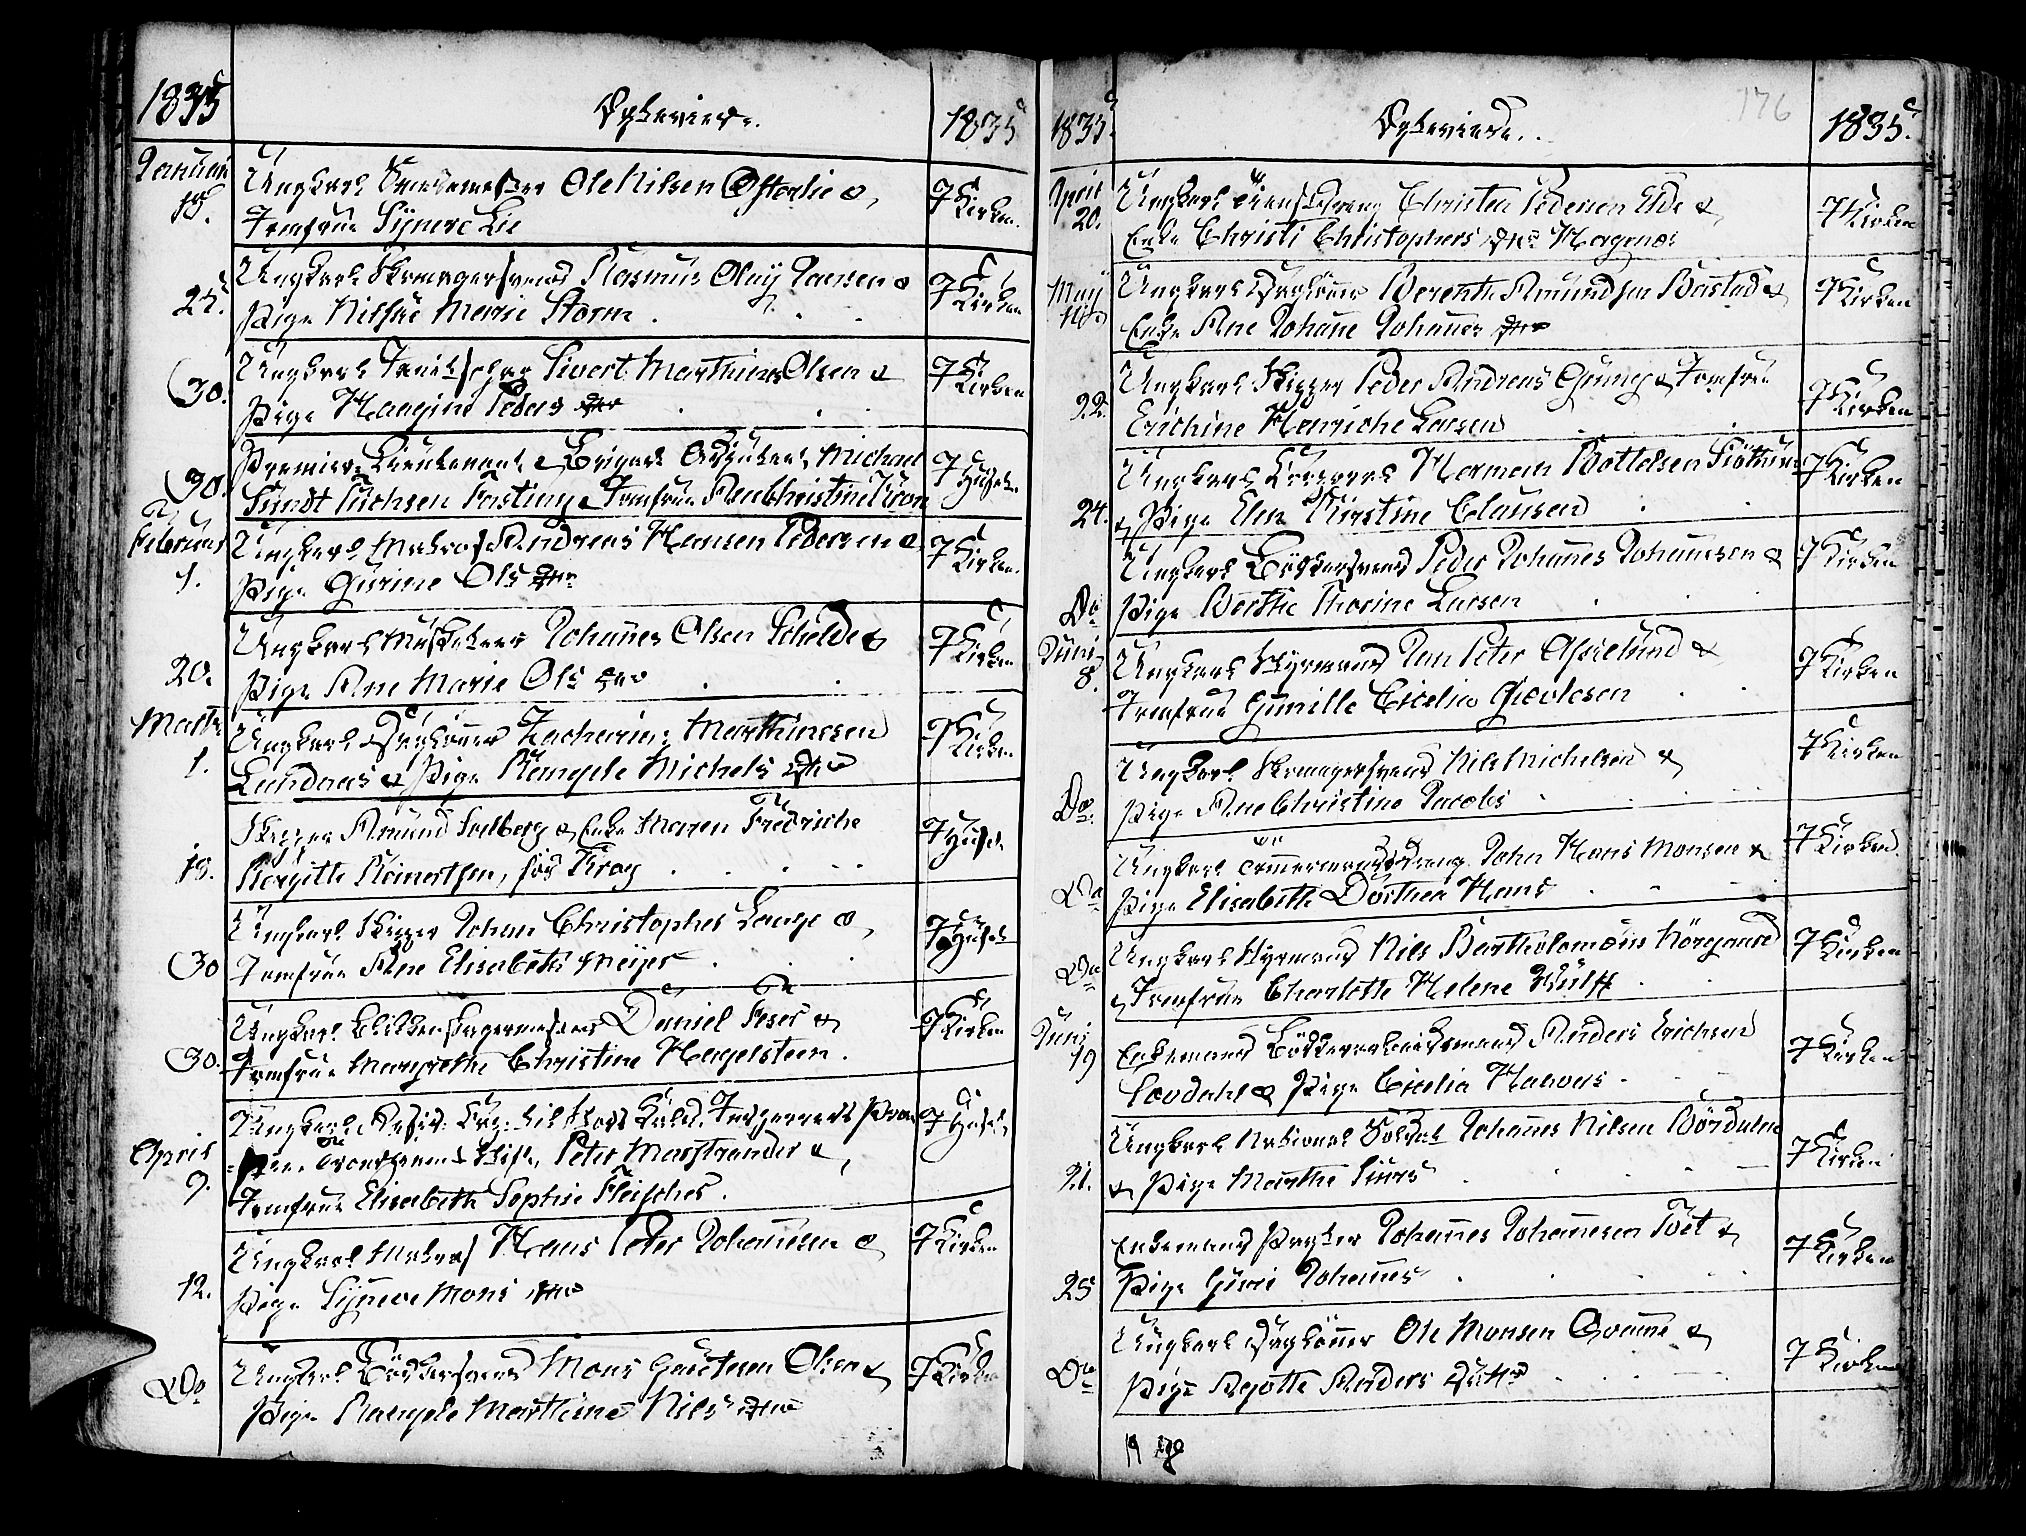 1835
Egteviede.
1835
Januar
18.
Ungkarl Snedkermester Ole Nilsen Østerlie &
Jomfrue Synneve Lie
I Kirken.
25.
Ungkarl Skomagersvend Rasmus Oluf Jansen &
Pige Nilsine Marie Storm
I Kirken
30.
Ungkarl Sivert Marthinus Olsen &
Pige Haagine Peders Dtr
I Kirken
30.
Premier Lieutenant & Brigade Adjutant Michael
Sundt Tuchsen Fasting & Jomfrue Ane Christine Kron
I Huset.
Februar
1.
Ungkarl Matros Andreas Hansen Pedersen &
Pige Gurine Ols Dtr
I Kirken.
20.
Ungkarl Musketeer Johannes Olsen Schelde &
Pige Ane Marie Ols Dtr
I Kirken
Martz
1.
Ungkarl Dagløнner Zacharias Marthinssen
Lundnæs & Pige Rangele Michels Dtr
I Kirken
18.
Skipper Amund Salberg & Enke Maren Fredriche
Birgitte Reinertsen, født Krog
I Huset
30
Ungkarl Skipper Johan Christopher Lange &
Jomfrue Ane Elisabeth Meijer
I Huset
30.
Ungkarl Blikkenslagermester Daniel &
Jomfrue Margrethe Christine Hagelsteen.
I Kirken
April
9.
Ungkarl
Peter Marstrander &
Jomfrue Elisabeth Sophie Fleischer.
I Huset
12.
Ungkarl Matros Hans Peter Johannesen &
Pige Synneve Mons Dtr
I Kirken
Do
Ungkarl Bødkersvend Mons Olsen &
Pige Rangele Marthine Nils Dtr
I Kirken
1835
Egteviede.
176
1835.
April
20.
Ungkarl Christen Pedersen Eide &
Enke Christi Christophers Dtr Hagenes
I Kirken
May
10.
Ungkarl Dagløнner Berenth Amundsen Bastad &
Enke Ane Johanne Johannes Dtr
I Kirken
22.
Ungkarl Skipper Peder Andreas & Jomfrue
Erichine Henriche Larsen
I Kirken
24.
Ungkarl Herman Bottelsen
& Pige Elen Kirstine Clausen
I Kirken
Do
Ungkarl Bødkersvend Peder Johannes Johannesen &
Pige Berthe Thorine Larsen
I Kirken
Juni
8.
Ungkarl Styrmand Jan Peter Asselund &
Jomfrue Gunille Cicelia Giertsen
I Kirken
Do
Ungkarl Skomagersvend Nils Michelsen &
Pige Ane Christine Jacobs
I Kirken
Do
Ungkarl Tømmermandsdreng John Hans Monsen &
Pige Elisabeth Dorthea Hans
I Kirken.
Do
Ungkarl Styrmand Nils Bartholomæus Nörgaard
& Jomfrue Charlotte Helene Wulff
I Kirken
Juni
19
Enkemand Bødkerarbeidsmand Anders Erichsen
Lovdahl & Pige Cicelia Halvors
I Kirken
21.
Ungkarl National Soldat Johannes Nilsen Bördalen
& Pige Marthe Siurs
I Kirken
25
Enkemand Johannes Johannesen Tvet &
Pige Guri Johannes
I Kirken
Do
Ungkarl Dagløнner Ole Monsen Qvamme &
Pige Agotte Anders Datter
I Kirken